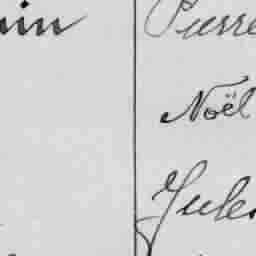 Pierre
Noël
Jules